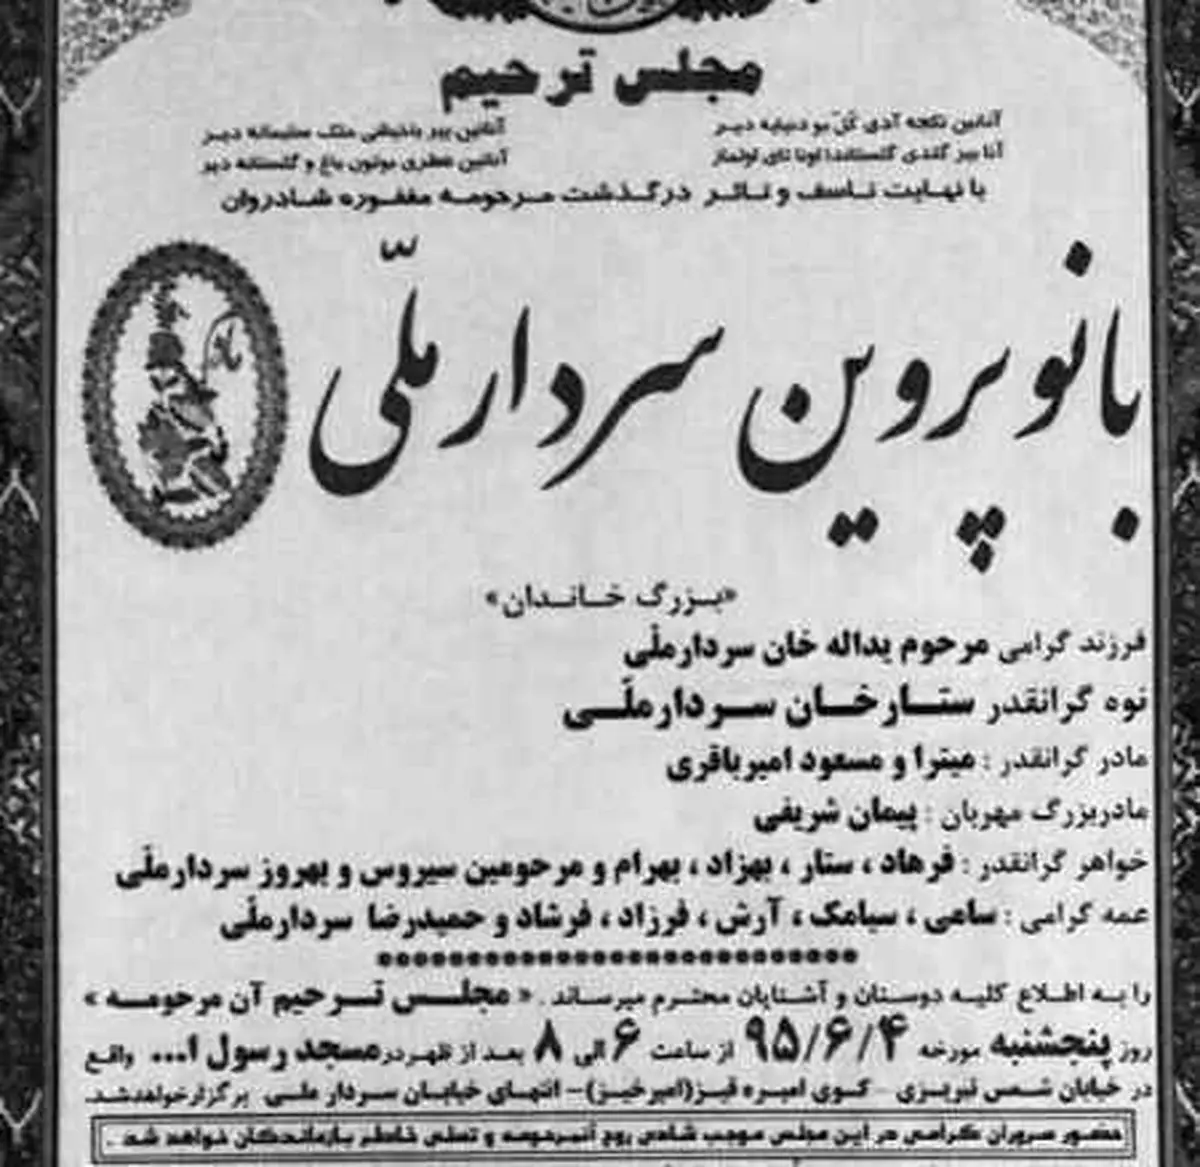 مجلس ترحیم
با نهایت تاسف و تاثر درگذشت مرحومه مغفوره شادروان
بانو پروین سردار ملّی
«بزرگ خاندان»
فرزند گرامی مرحوم یداله خان سردارملّی
نوه گرانقدر ستارخان سردارملّی
مادر گرانقدر : میترا و مسعود امیرباقری
مادربزرگ مهربان : پیمان شریفی
خواهر گرانقدر : فرهاد ، ستار ، بهزاد ، بهرام و مرحومین سیروس و بهروز سردارملّی
عمه گرامی : سامی ، سیامک ، آرش ، فرزاد ، فرشاد و حمیدرضا سردارملّی
را به اطلاع کلیه دوستان و آشنایان محترم میرساند . « مجلس ترحیم آن مرحومه »
روز پنجشنبه مورخه ۹۵/۶/۴ از ساعت ۶ الی ۸ بعد از ظهر در مسجد رسول ا... واقع
در خیابان شمس تبریزی - کوی امیره قیز(امیرخیز)- انتهای خیابان سردار ملی برگزار خواهد شد.
حضور سروران گرامی در این مجلس موجب شادی روح آنمرحومه و تسلی خاطر بازماندگان خواهد شد .